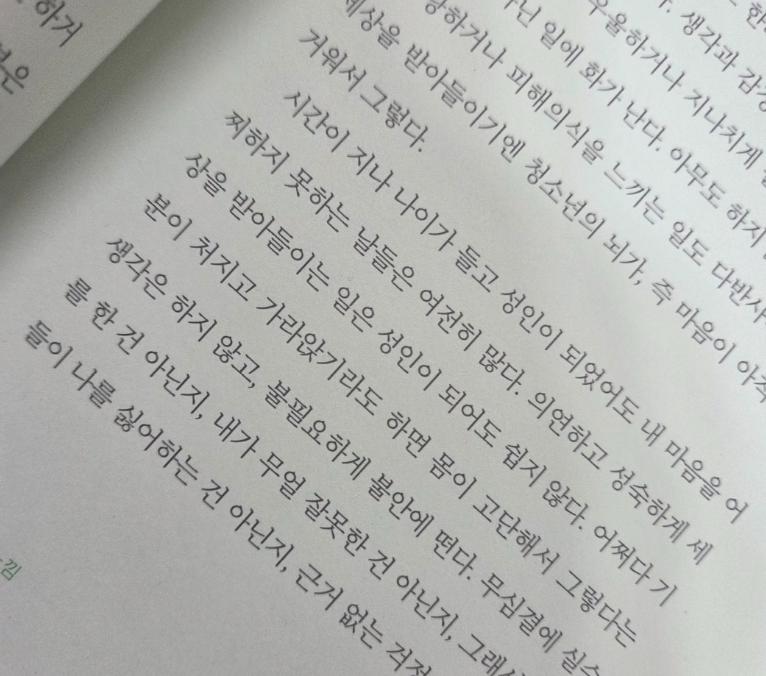 하거
은
생각과 감정
우울하거나 지나치게
일에 화가 난다. 아무도 하지
하거나 피해의식을 느끼는 일도 다반사
세상을 받아들이기엔 청소년의 뇌가, 즉 마음이 아직
거워서 그렇다.
시간이 지나 나이가 들고 성인이 되었어도 내 마음을 어
찌하지 못하는 날들은 여전히 많다. 의연하고 성숙하게 세
상을 받아들이는 일은 성인이 되어도 쉽지 않다. 어쩌다 기
분이 처지고 가라앉기라도 하면 몸이 고단해서 그렇다는
생각은 하지 않고, 불필요하게 불안에 떤다. 무심결에 실수
를 한 건 아닌지, 내가 무얼 잘못한 건 아닌지, 그래서
들이 나를 싫어하는 건 아닌지, 근거 없는 걱정
낌